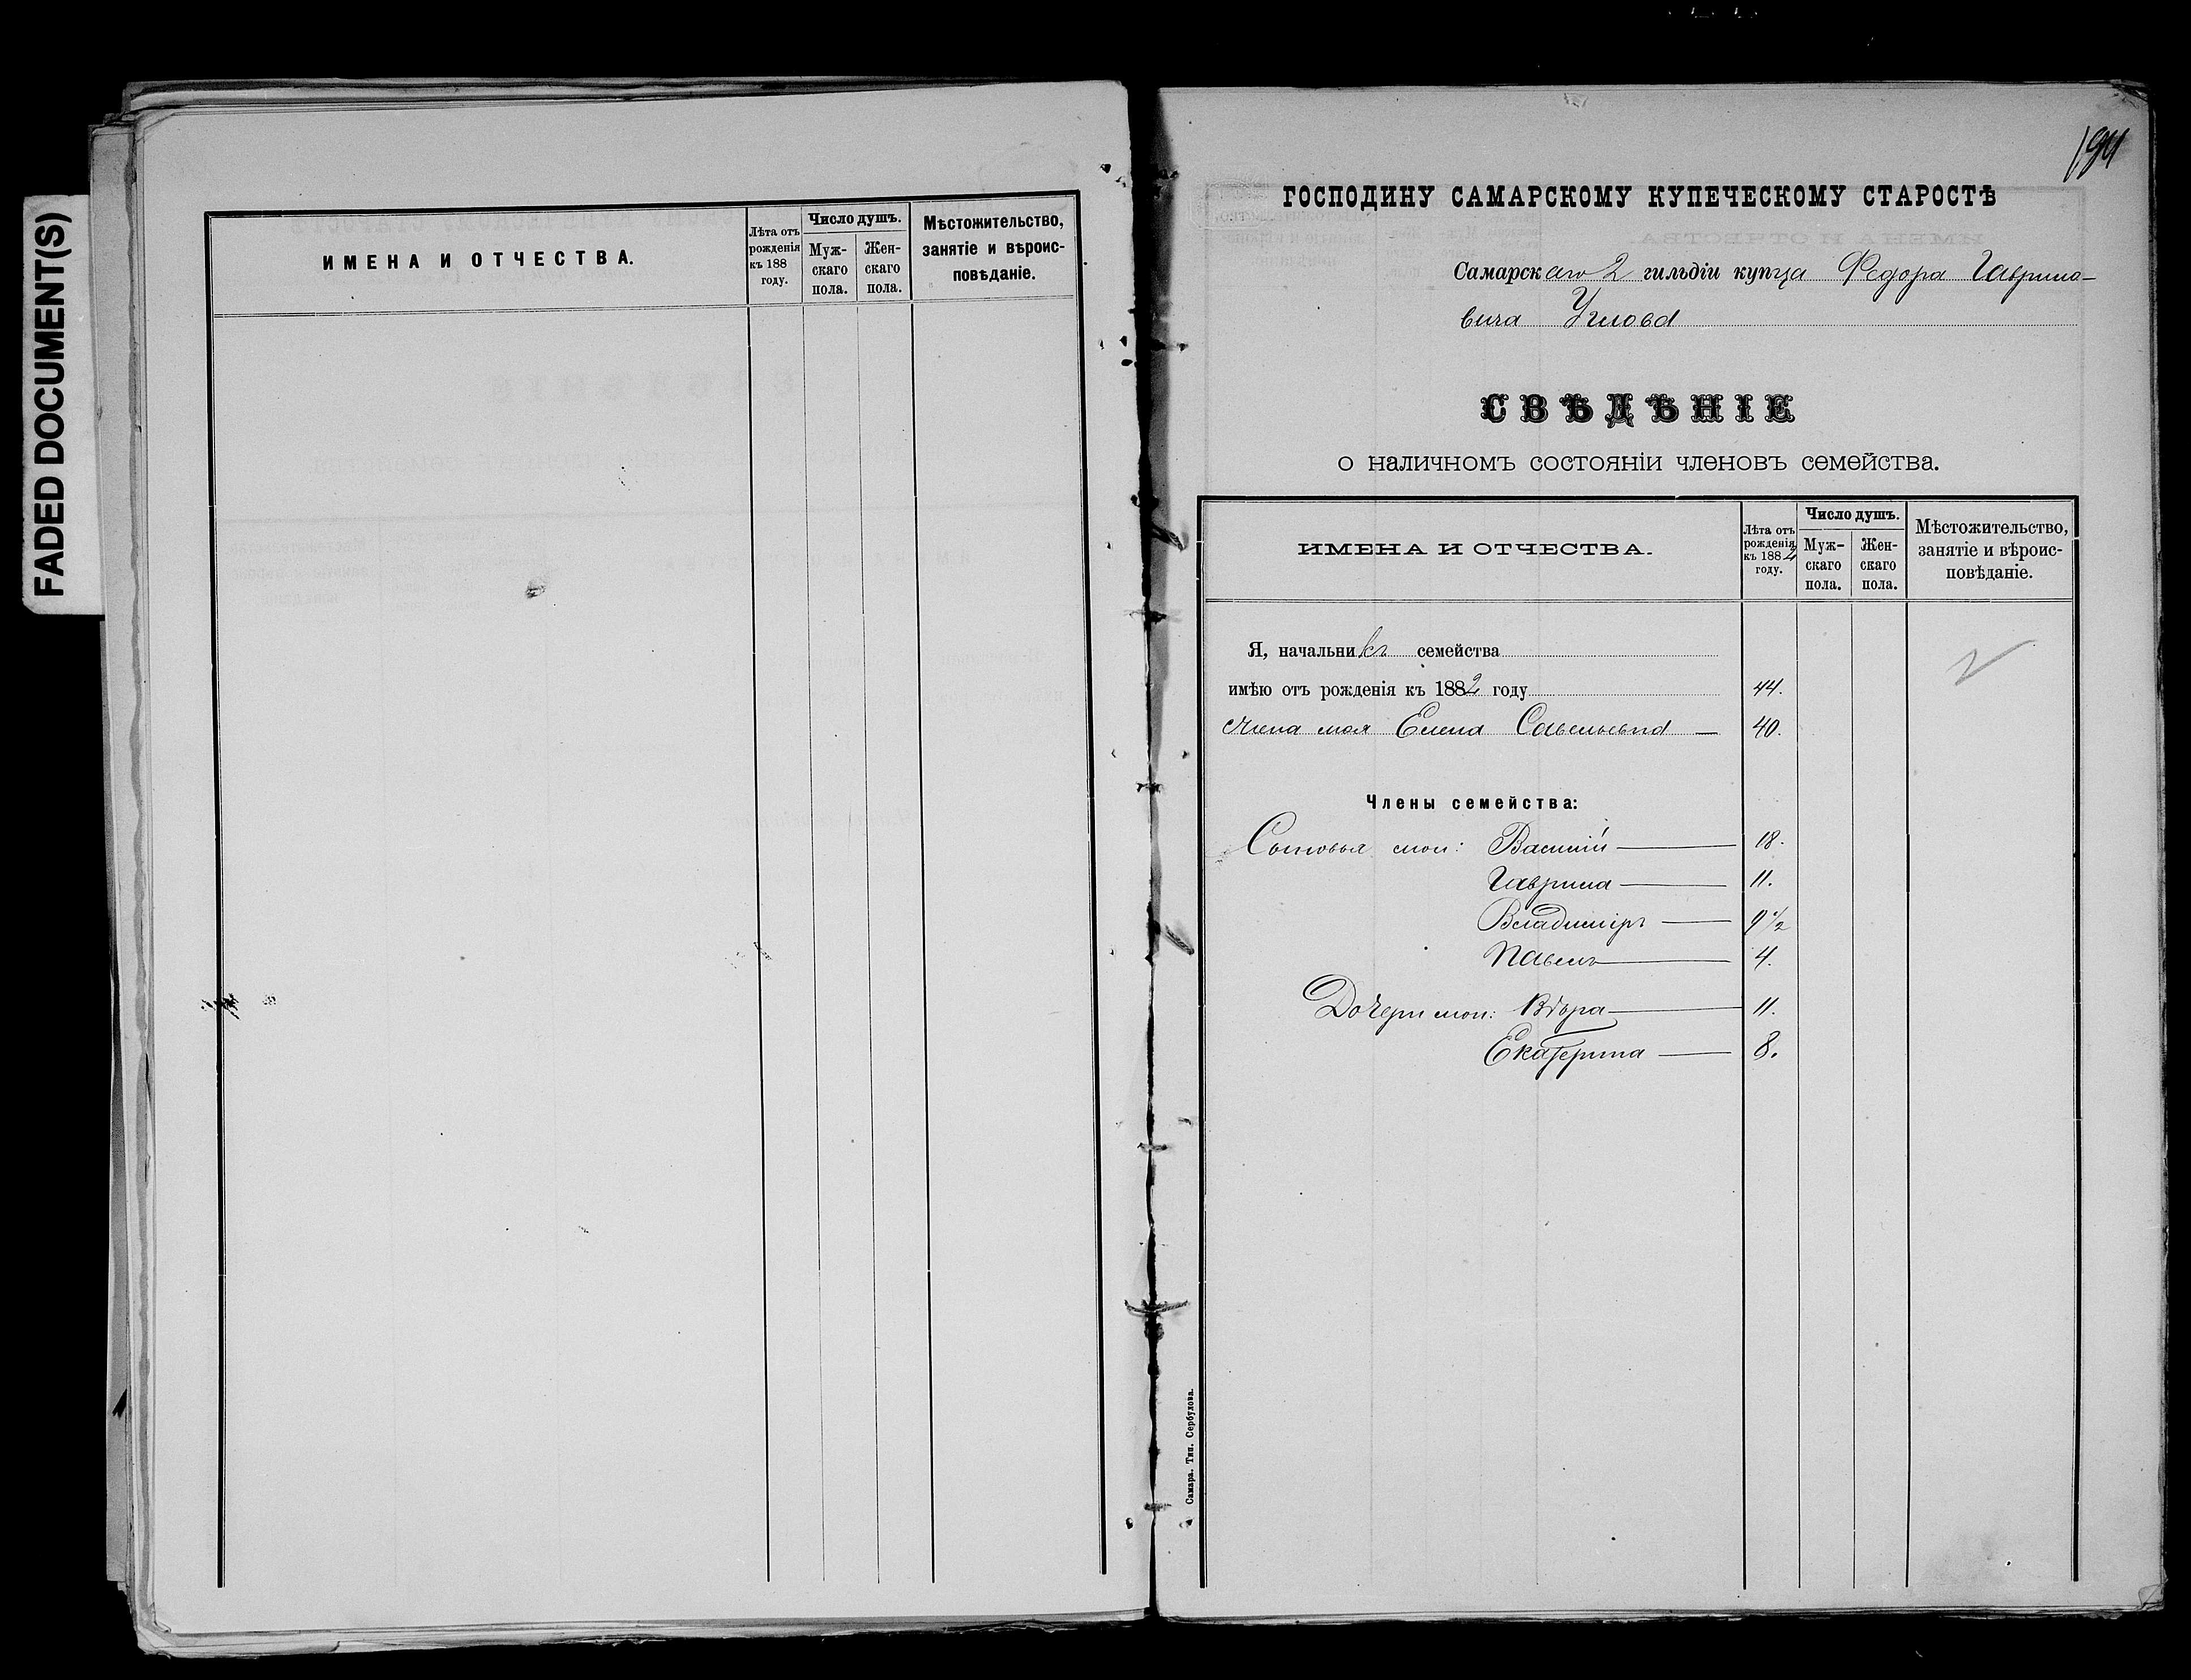 FADED DOCUMENT(S)
ИМЕНА И ОТЧЕСТВА.
Лѣта отъ рожденія къ 188 году.
Число душъ.
Мужскаго пола.
Женскаго пола.
Мѣстожительство, занятіе и вѣроисповѣданіе.
194
ГОСПОДИНУ САМАРСКОМУ КУПЕЧЕСКОМУ СТАРОСТѢ
Самарскаго 2 гильдіи купца Федора Гаврило-
вича Углова
СВѢДѢНІЕ
о наличномъ состояніи членовъ семейства.
ИМЕНА И ОТЧЕСТВА.
Лѣта отъ рожденія къ 1882 году.
Число душъ.
Мужскаго пола.
Женскаго пола.
Мѣстожительство, занятіе и вѣроисповѣданіе.
Я, начальникъ семейства
имѣю отъ рожденія къ 1882 году 44.
Жена моя Елена Савельевна — 40.
Члены семейства:
Сыновья мои: Василій — 18.
Гаврила — 11.
Владиміръ — 9 1/2
Павелъ — 4.
Дочери мои: Вѣра — 11.
Екатерина — 8.
Самара. Тип. Сербулова.